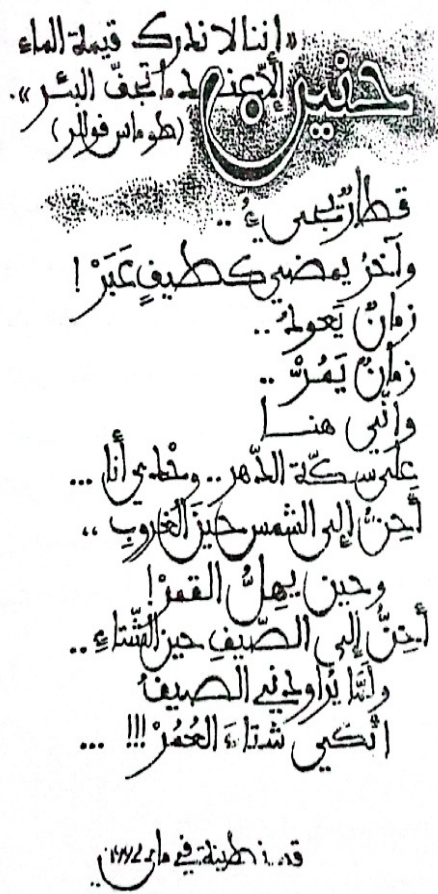 حنين
«إننا لا ندرك قيمة الماء
إلاّ عندما تجفّ البئر».
(طوماس فوللر)
قطارٌ يجيءُ..
وآخرُ يمضي كطيفٍ عَبَرْ!
زمانٌ يَعودُ..
زمانٌ يَمُرّْ..
وإنّي هنا
على سكّة الدّهر.. وحْدي أنا...
أحِنُّ إلى الشمس حينَ الغروبِ،،
وحين يهِلُّ القمرْ!
أحِنُّ إلى الصّيفِ حينَ الشّتاءِ..
وأمّا يُراودني الصيفُ
شتاءَ العُمُرْ!!!...
قسنطينة في ماي